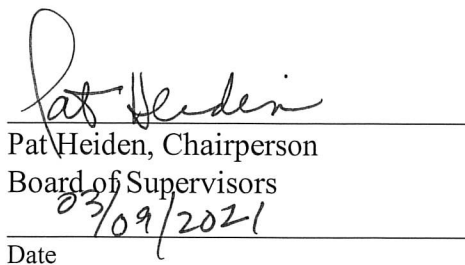 Pat Heiden
Pat Heiden, Chairperson
Board of Supervisors
03/09/2021
Date